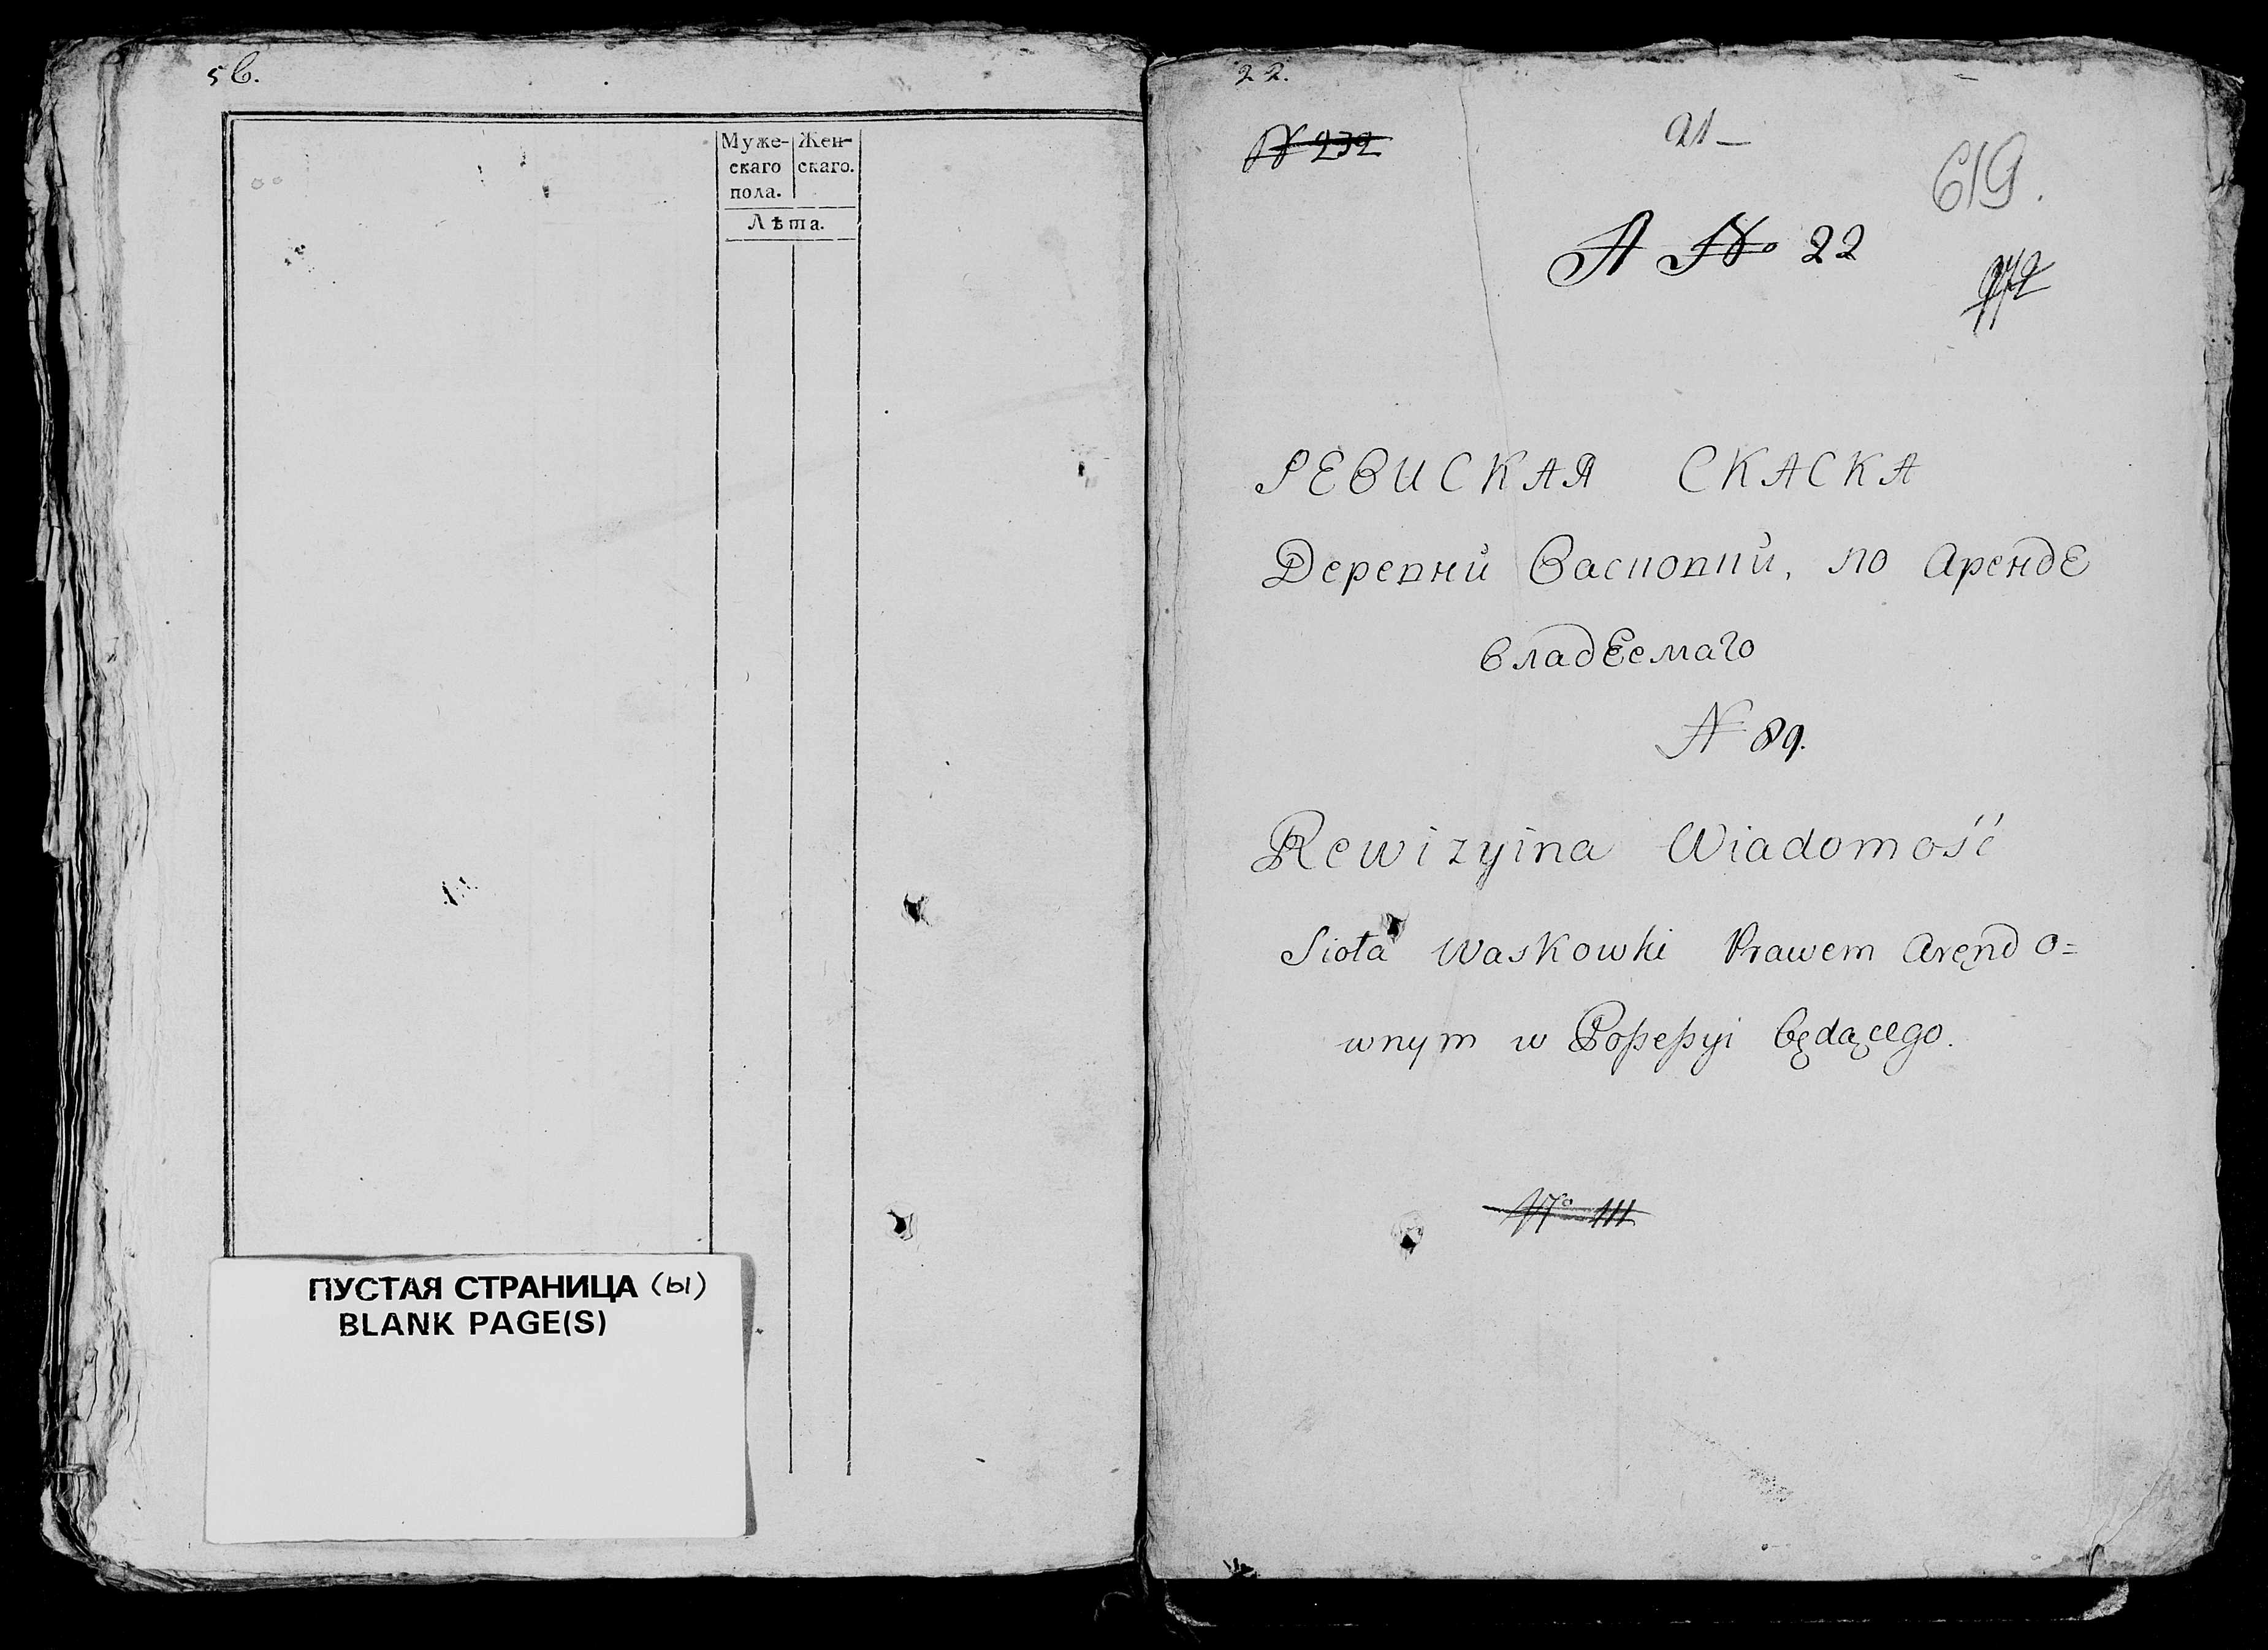 56.
Муже-
скаго
пола.
Жен-
скаго.
Лѣта.
ПУСТАЯ СТРАНИЦА (ы)
BLANK PAGE(S)
22.
N 232
21 –
619.
A No 22
РЕВИСКАЯ СКАСКА
Деревни Васковки, по Арендѣ
владѣемаго
N 89.
Rewizyina Wiadomość
Sioła Waskowki Prawem Aręndo=
wnym w Poßeßyi będącego.
No 111